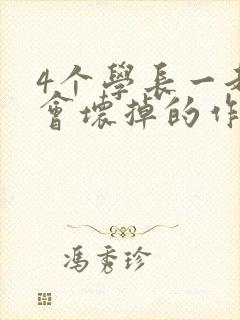 4个學長一起
會壞掉的作
馮秀珍